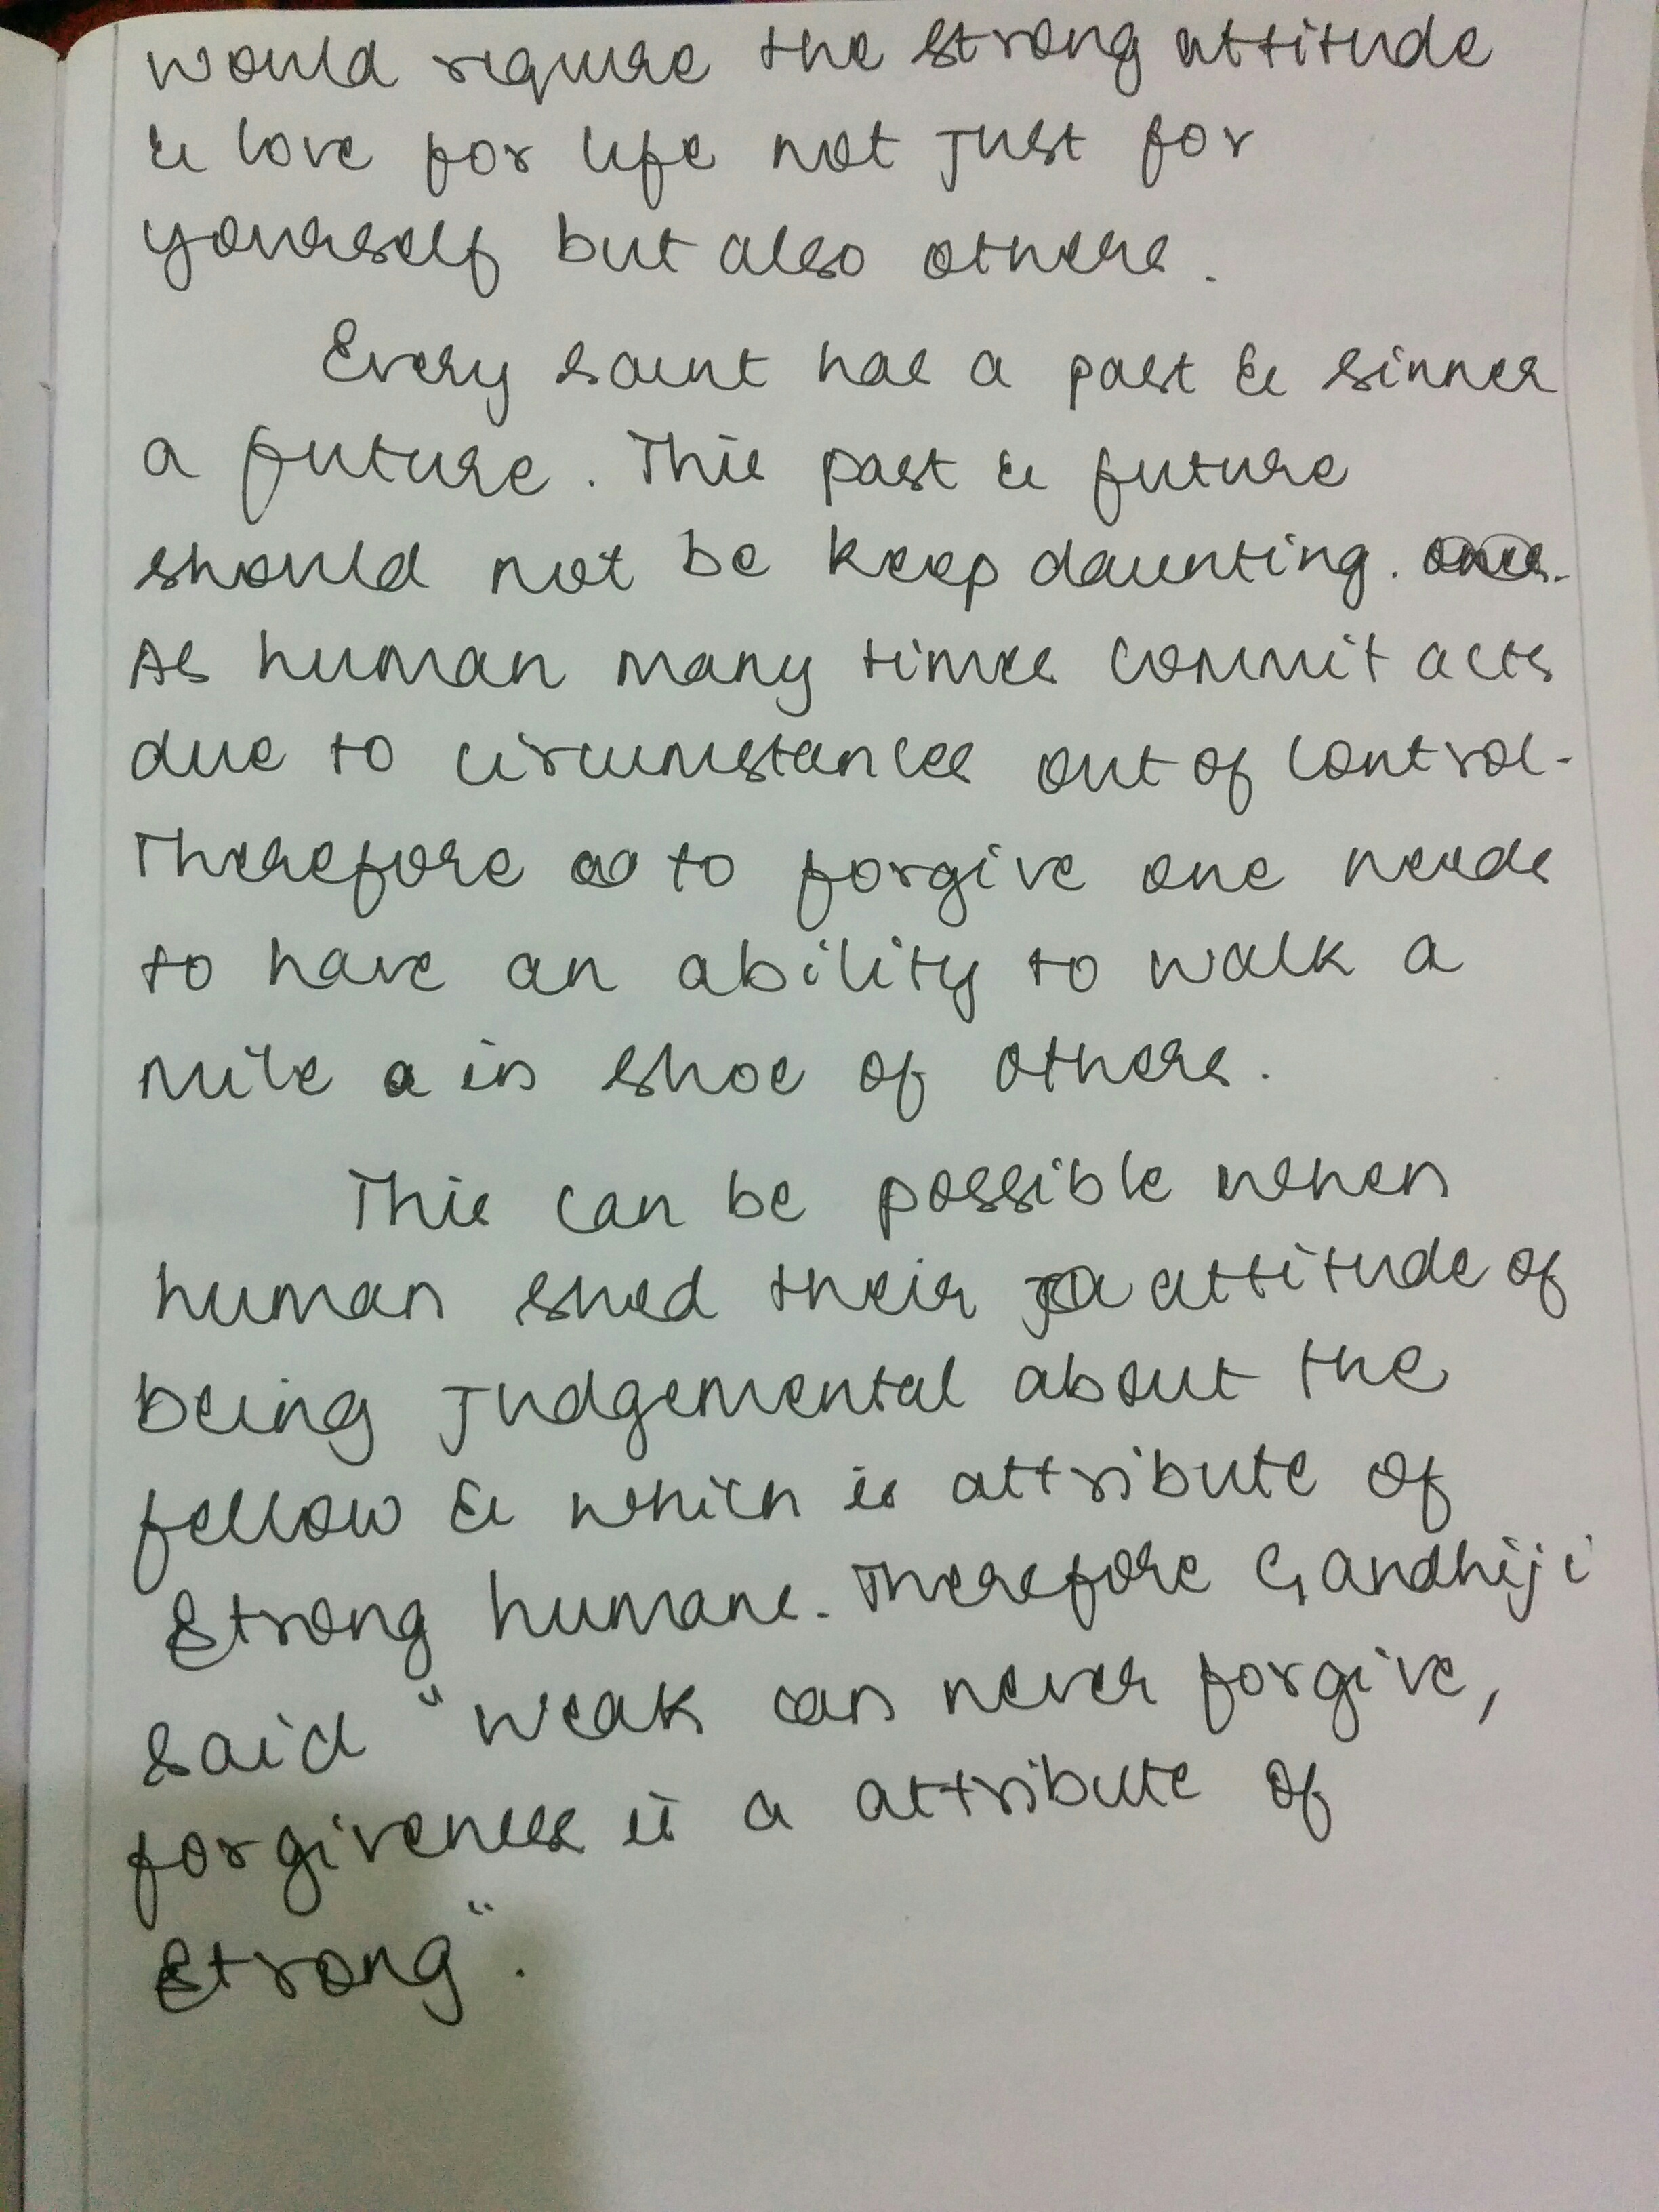 would require the strong attitude
& love for life not just for
yourself but also others.
Every saint has a past & sinner
a future. This past & future
should not be keep daunting.
As human many times commit acts
due to circumstances out of control.
Therefore to forgive one needs
to have an ability to walk a
mile in shoe of others.
This can be possible when
human shed their attitude of
being judgemental about the
fellow & which is attribute of
strong humans. Therefore Gandhiji
said "weak can never forgive,
forgiveness is a attribute of
strong".